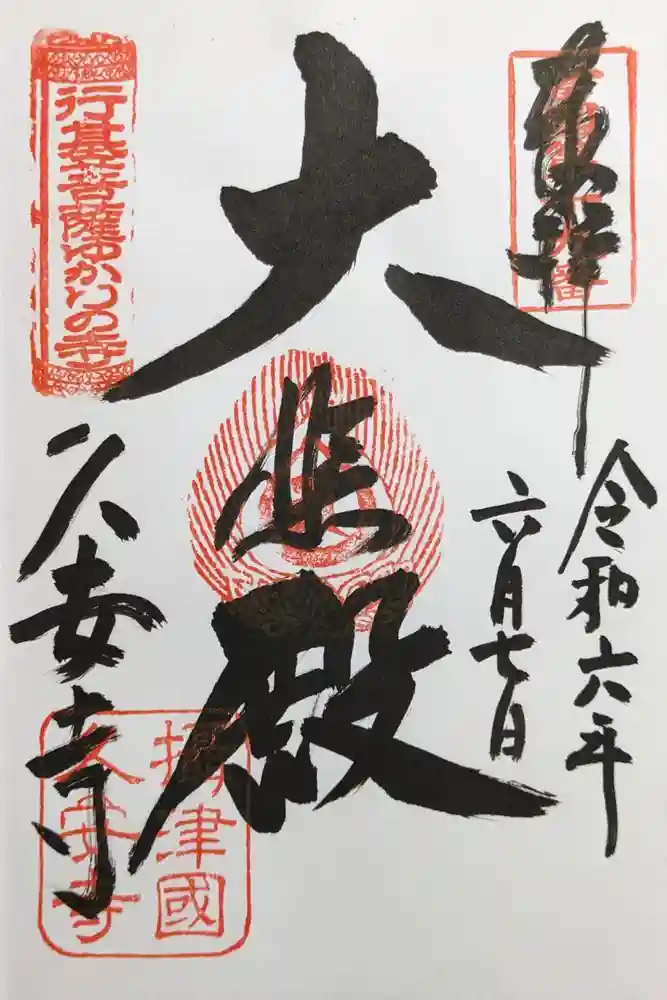 奉拝
令和六年
六月七日
大悲殿
行基菩薩ゆかりの寺
久安寺
摂津國
久安寺